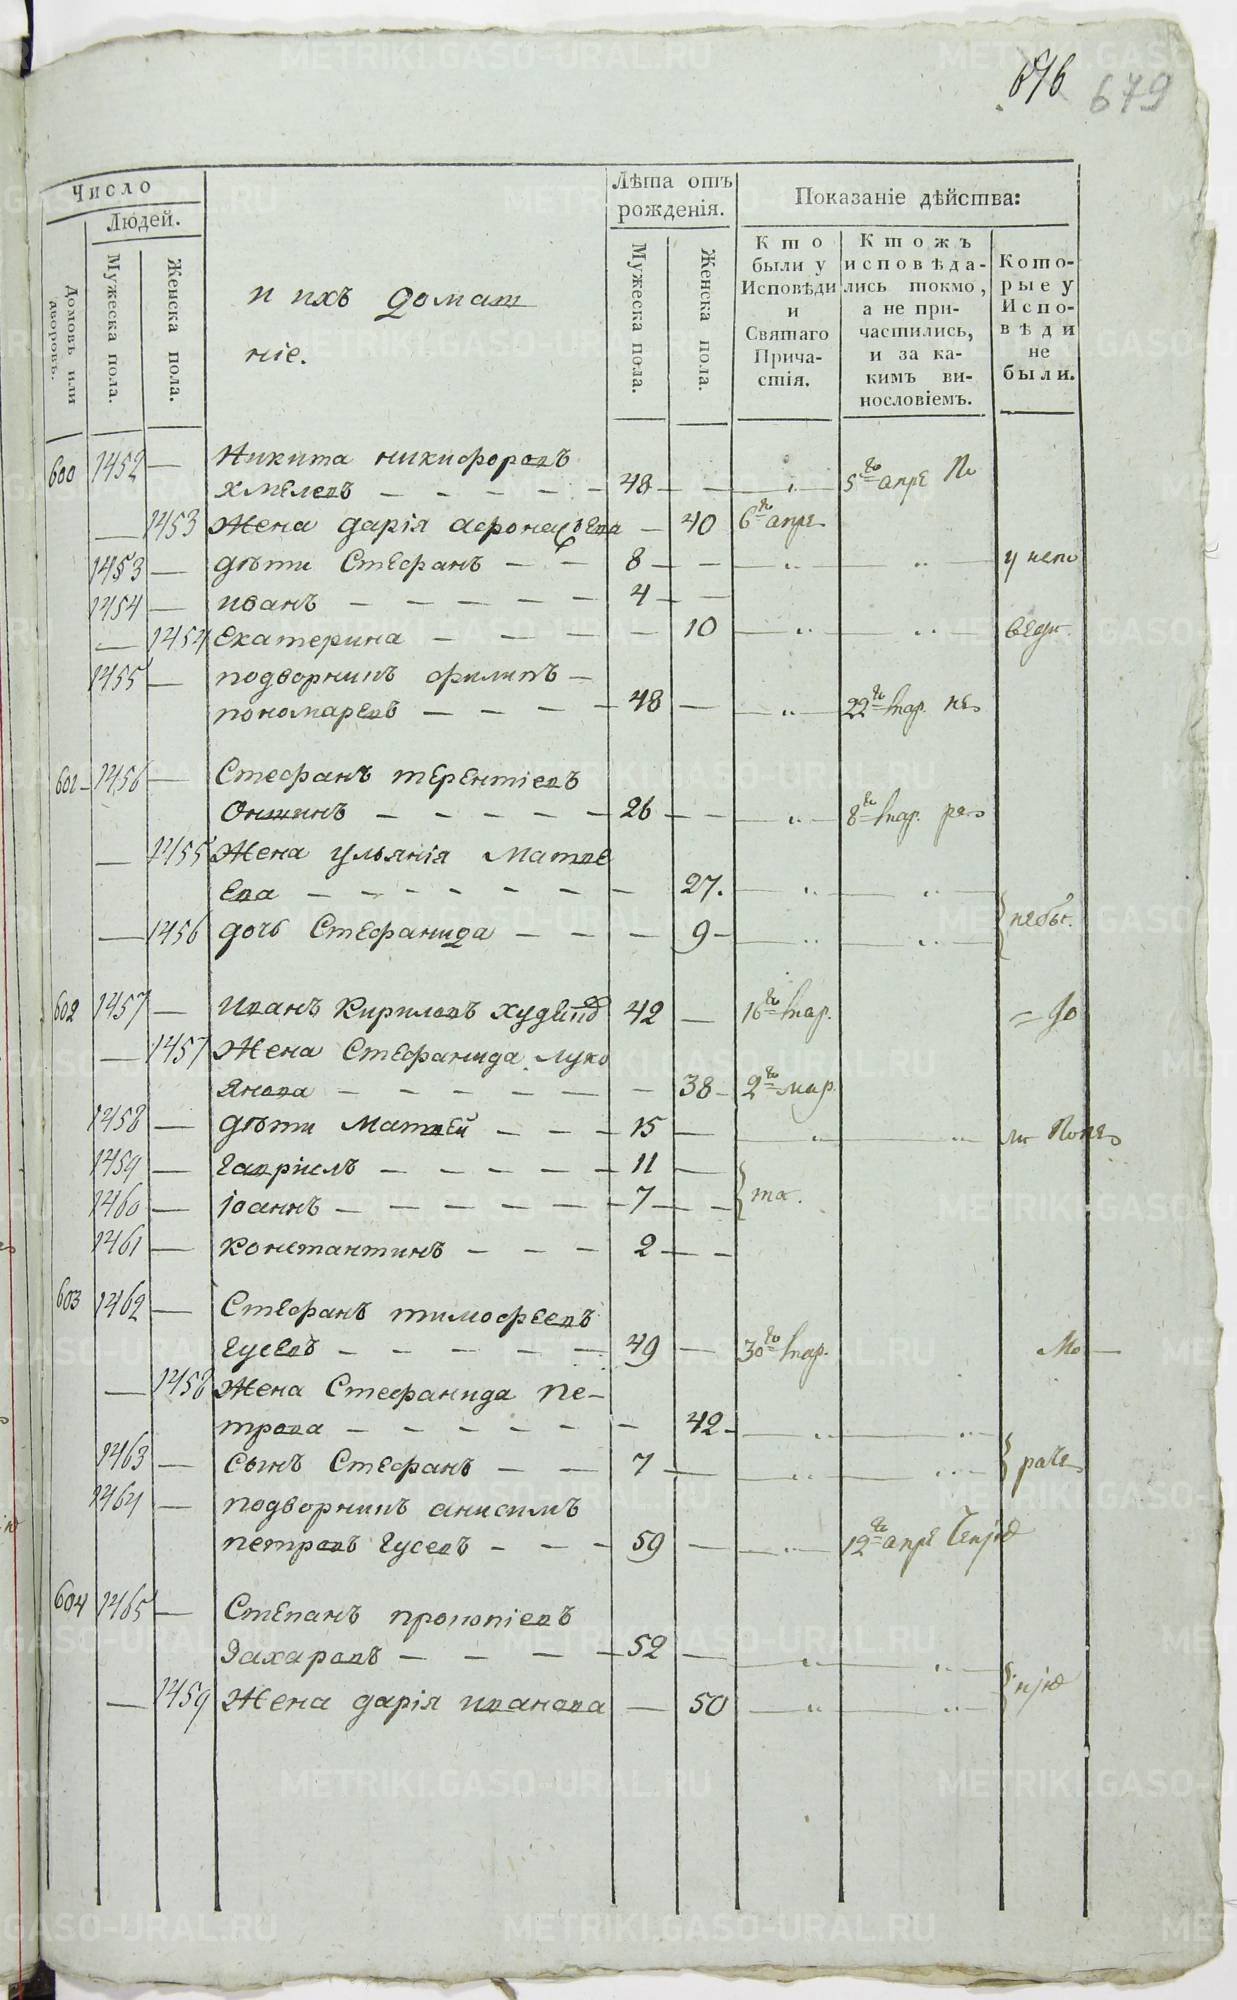 676 679
Число
Людей.
Домовъ или дворовъ.
Мужеска пола.
Женска пола.
и ихъ домаш
ніе.
Лѣта отъ рожденія.
Мужеска пола.
Женска пола.
Показаніе дѣйства:
Кто были у Исповѣди и Святаго Причастія.
Ктожъ исповѣдались токмо, а не причастились, и за какимъ винословіемъ.
Которые у Исповѣди не были.
600 1452 — Никита никифоровъ
хмелевъ — — — — — 48 — — — „ 5го апре По
— 1453 Жена дарія афонасьева — 40 6го апре
1453 — дѣти Стефанъ — — 8 — — — „ — „ — у испо
1454 — иванъ — — — — — 4 — —
— 1454 Екатерина — — — — — 10 — „ — „ ведн.
1455 — подворникъ филипъ —
пономаревъ — — — — 48 — — „ 22го мар. не
601 — 1456 — Стефанъ терентіевъ
Оншинъ — — — — — 26 — — — „ 8го мар.
— 1455 Жена ульянія Матве
ева — — — — — — — 27. — „ — „ —
— 1456 дочь Стефанида — — — 9 — — „ — „ — небы.
602 1457 — Иванъ Кириловъ 42 — 16го мар. = до
— 1457 Жена Стефанида луко
янова — — — — — — 38 — 2го мар.
1458 — дѣти Матвей — — — 15 — — „ — „
1459 — гавріилъ — — — — — 11 —
1460 — іоаннъ — — — — — — 7 — — та.
1461 — константинъ — — — 2 — —
603 1462 — Стефанъ тимофеевъ
гусевъ — — — — — 49 — 30го мар. Мо —
— 1458 Жена Стефанида Пе-
трова — — — — — — 42 — — „ — „
1463 — сынъ Стефанъ — — 7 — — — „ — „
1464 — подворникъ анисимъ
петровъ гусевъ — — — 59 — — „ 12го апре
604 1465 — Степанъ прокопіевъ
Захаровъ — — — — 52 — — „ — „
— 1459 Жена дарія иванова — 50 — „ — „
METRIKI.GASO-URAL.RU